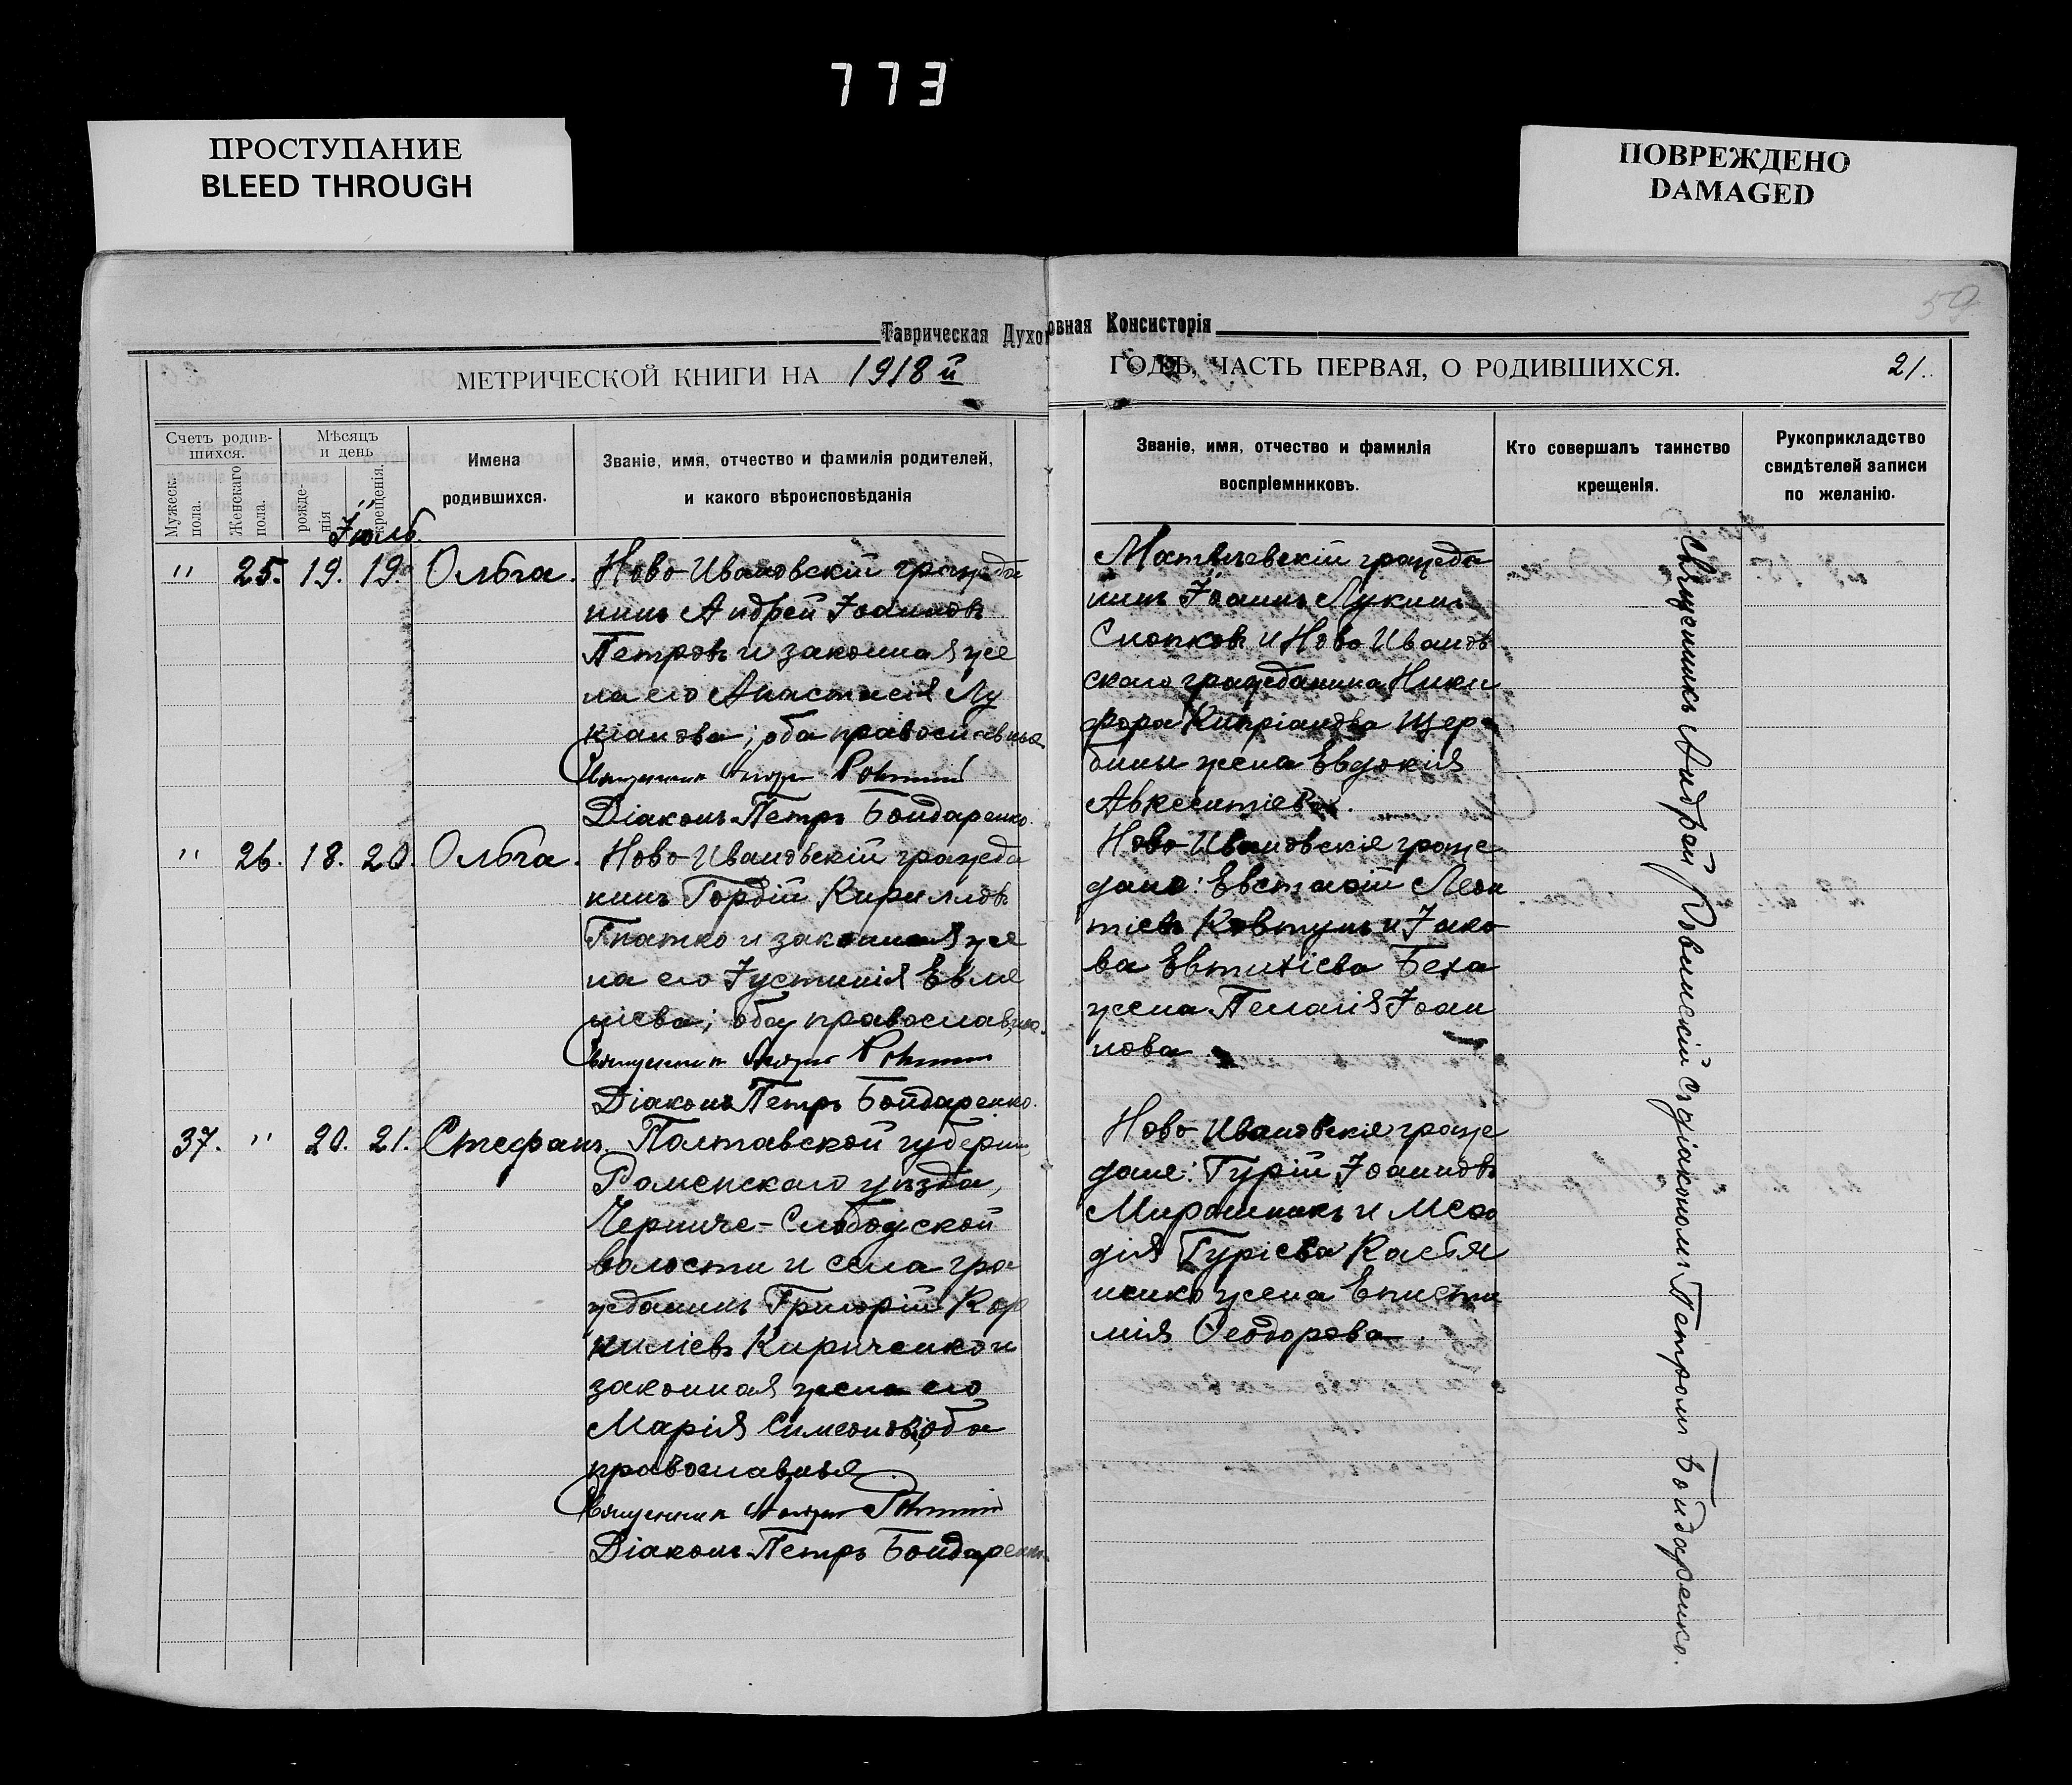 773
ПРОСТУПАНИЕ
BLEED THROUGH
ПОВРЕЖДЕНО
DAMAGED
59
Таврическая Духовная Консисторія
МЕТРИЧЕСКОЙ КНИГИ НА 1918 й ГОДЪ, ЧАСТЬ ПЕРВАЯ, О РОДИВШИХСЯ. 21.
Счетъ родив-
шихся.
Мужеск.
пола.
Женскаго
пола.
Мѣсяцъ
и день
рожде-
нія
крещенія.
Имена
родившихся.
Званіе, имя, отчество и фамилія родителей,
и какого вѣроисповѣданія
Званіе, имя, отчество и фамилія
воспріемниковъ.
Кто совершалъ таинство
крещенія.
Рукоприкладство
свидѣтелей записи
по желанію.
Іюль.
" 25. 19. 19. Ольга. Ново-Ивановскій гражда
нинъ Андрей Іоанновъ
Петровъ и законная же
на его Анастасія Лу
кіанова; оба православные
Священник Андрей
Діаконъ Петръ Бондаренко.
Матвѣевскій гражда
нинъ Іоаннъ Лукинъ
Снопковъ и Ново Иванов
скаго гражданина Ники
фора Кипріанова Щер
бины жена Евдокія
Авксентіева.
" 26. 18. 20. Ольга. Ново-Ивановскій гражда
нинъ Гордій Кирилловъ
Гнатко и законная же
на его Іустинія Евме
ніева; оба православно.
Священник Андрей
Діаконъ Петръ Бондаренко.
Ново-Ивановскіе граж
дане: Евстафій Леон
тіевъ Ковтунъ и Іако
ва Евтихіева Беха
жена Пелагія Іоан
нова
37. " 20. 21. Стефанъ. Полтавской губерніи
Роменскаго уѣзда,
Чернече-Слободской
волости и села гра
жданинъ Григорій Кор
ниліевъ Кириченко и
законная жена его
Марія Симеонова; оба
православные.
Священник Андрей
Діаконъ Петръ Бондаренко
Ново-Ивановскіе граж
дане: Гурій Іоанновъ
Мирошникъ и Меѳо
дія Гуріева Касья
ненко жена Еписти
мія Ѳеодорова.
Священникъ Андрей Ровинскій съ діакономъ Петромъ Бондаренко.